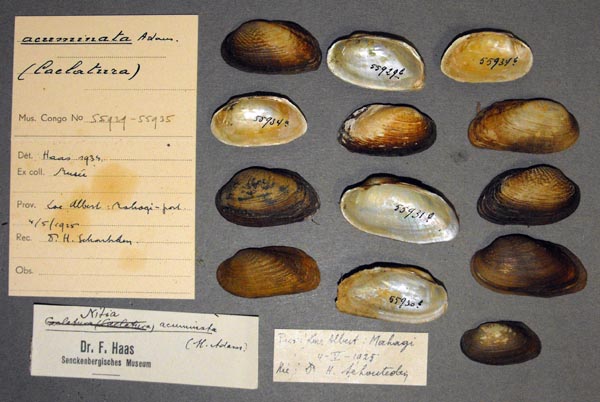 acuminata Adams.
(Caelatura)
Mus. Congo No 55929-55935
Dét. Haas 1934
Ex coll. Musée
Prov. Lac Albert: Mahagi-port
4/5/1925
Rec. Dr. H. Schouteden.
Obs.
Nitia
Coelatura (Caelatura) acuminata
(H. Adams)
Dr. F. Haas
Senckenbergisches Museum
Lac Albert: Mahagi
4-V-1925
Rec: Dr H. Schouteden
55929
55934
55934
55931
55930